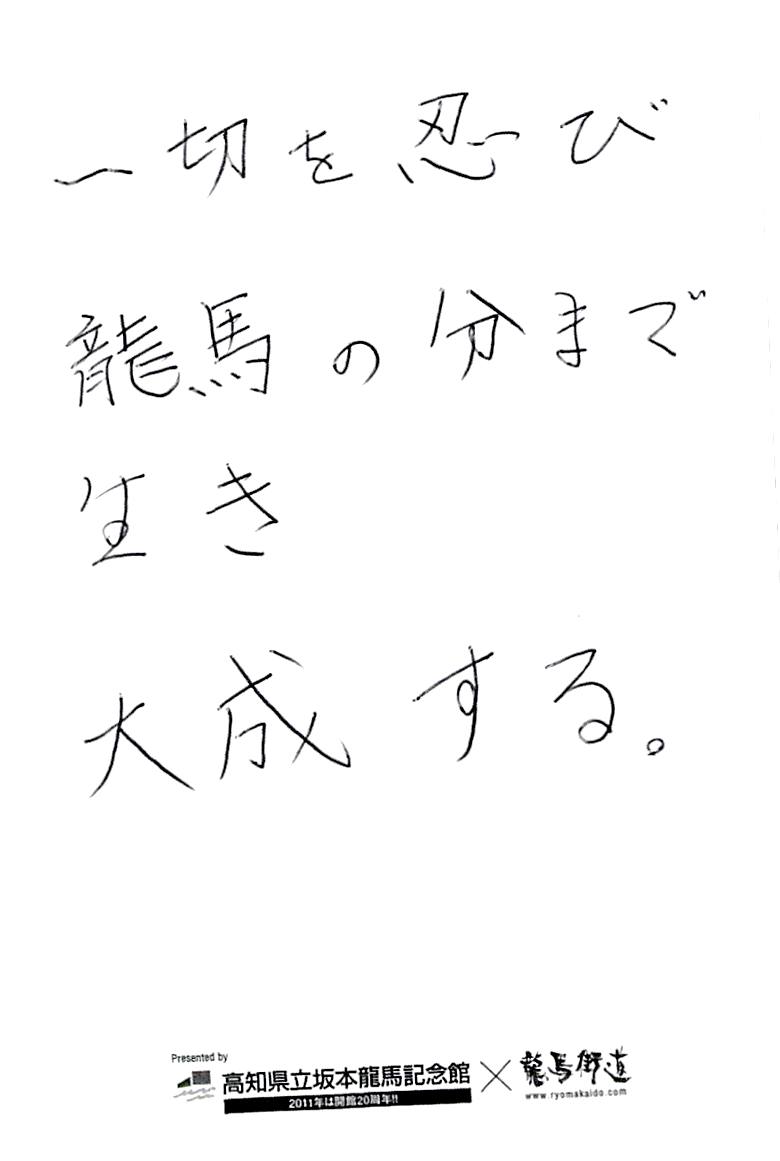 一切を忍び
龍馬の分まで
生き
大成する。
Presented by
高知県立坂本龍馬記念館×龍馬街道
2011年は開館20周年!!
www.ryomakaido.com